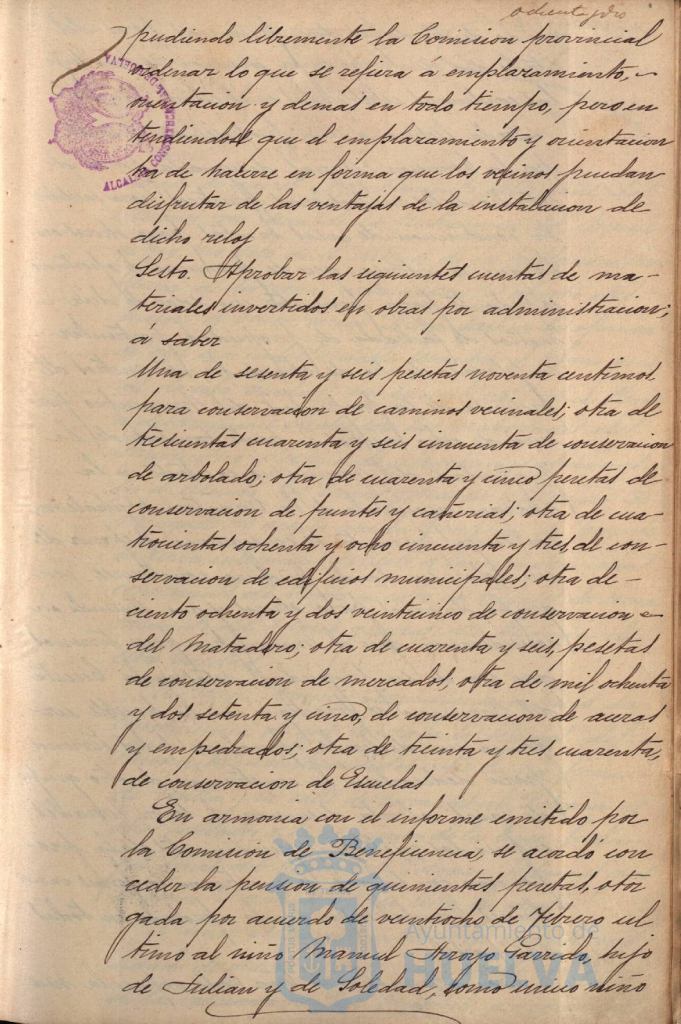 ochenta y dos
pudiendo libremente la Comision provincial
ordenar lo que se refiera á emplazamiento,
orientacion y demas en todo tiempo, pero en
tendiendose que el emplazamiento y orientacion
ha de hacerse en forma que los vecinos puedan
disfrutar de las ventajas de la instalacion de
dicho reloj
Sesto. Aprobar las siguientes cuentas de ma-
teriales invertidos en obras por administracion;
á saber
Una de sesenta y seis pesetas noventa centimos
para conservacion de caminos vecinales; otra de
trescientas cuarenta y seis cincuenta de conservacion
de arbolado; otra de cuarenta y cinco pesetas de
conservacion de fuentes y cañerias; otra de cua-
trocientas ochenta y ocho cincuenta y tres, de con-
servacion de edificios municipales; otra de-
ciento ochenta y dos veinticinco de conservacion
del Matadero; otra de cuarenta y seis, pesetas
de conservacion de mercados; otra de mil ochenta
y dos setenta y cinco, de conservacion de aceras
y empedrados; otra de treinta y tres cuarenta,
de conservacion de Escuelas
En armonia con el informe emitido por
la Comision de Beneficencia, se acordó con
ceder la pension de quinientas pesetas, otor
gada por acuerdo de veintiocho de Febrero ul
timo al niño Manuel Arroyo Garrido, hijo
de Julian y de Soledad, como unico niño
ALCALDIA CONSTITUCIONAL
HUELVA
Ayuntamiento de
HUELVA